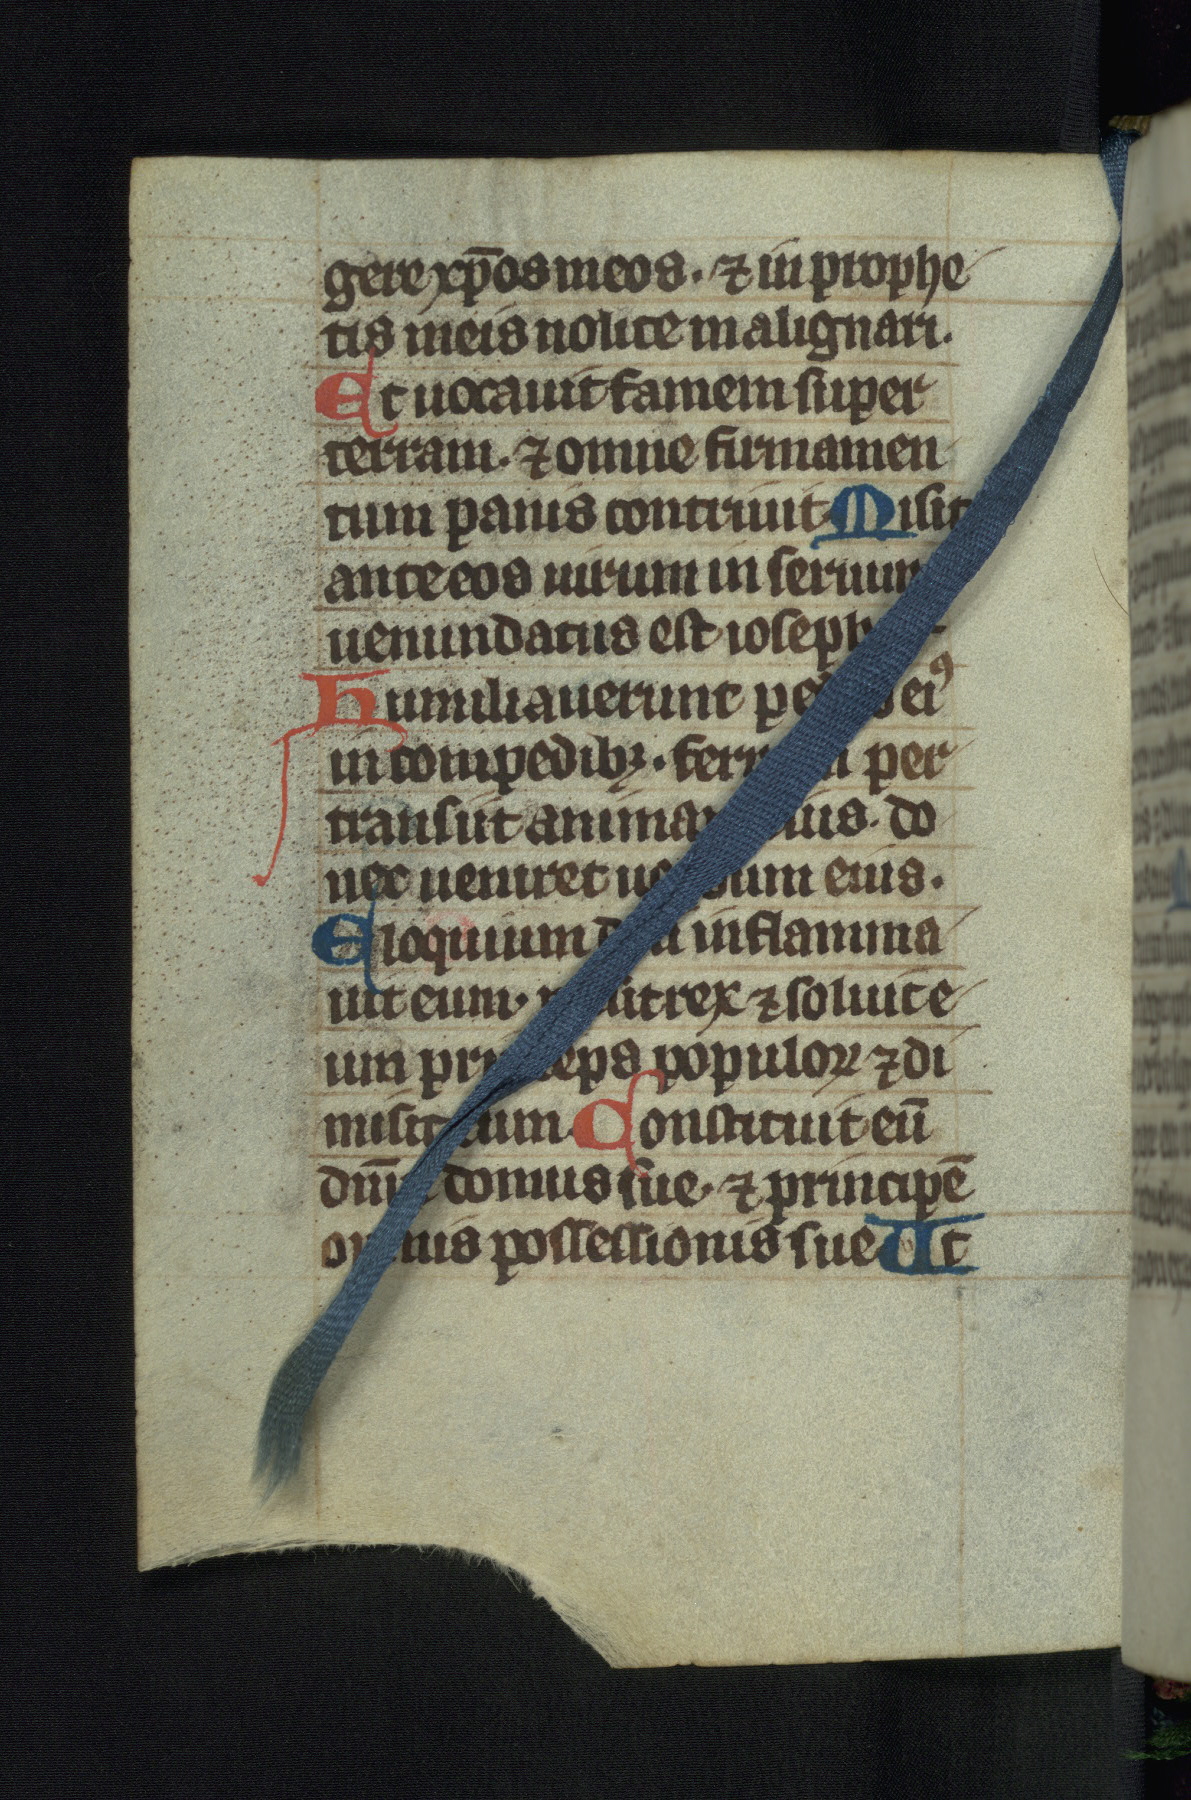 gere xp̄os meos. ⁊ in prophe
tis meis nolite malignari.
Et uocauit famem super
terram. ⁊ omne firmamen
tum panis contriuit. Misit
ante eos uirum in seruum
uenundatus est ioseph.
Humiliauerunt pedes ei⁹
in compedibꝫ. ferrum per
transiit animam eius. do
nec ueniret uerbum eius.
Eloquium dñi inflamma
uit eum. misit rex ⁊ soluit e
um princeps populoꝝ ⁊ di
misit eum. Constituit eū
dñm domus sue. ⁊ principē
omnis possessionis sue. Ut